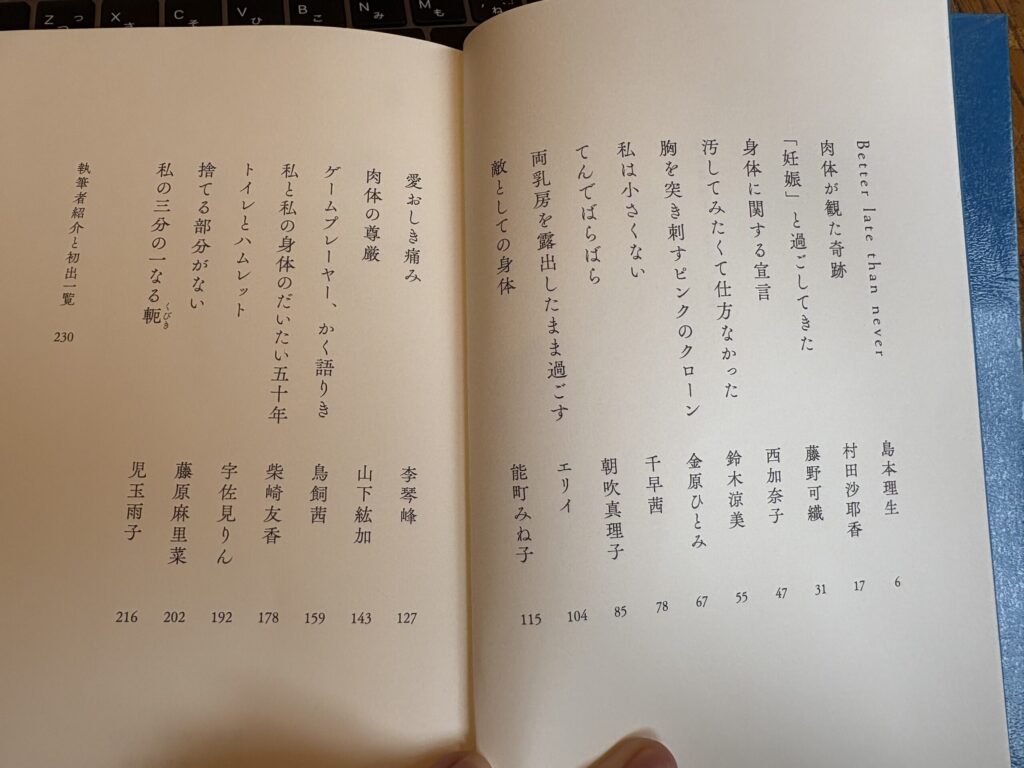 Better late than never 島本理生 6
肉体が観た奇跡 村田沙耶香 17
「妊娠」と過ごしてきた 藤野可織 31
身体に関する宣言 西加奈子 47
汚してみたくて仕方なかった 鈴木涼美 55
胸を突き刺すピンクのクローン 金原ひとみ 67
私は小さくない 千早茜 78
てんでばらばら 朝吹真理子 85
両乳房を露出したまま過ごす エリイ 104
敵としての身体 能町みね子 115
愛おしき痛み 李琴峰 127
肉体の尊厳 山下紘加 143
ゲームプレーヤー、かく語りき 鳥飼茜 159
私と私の身体のだいたい五十年 柴崎友香 178
トイレとハムレット 宇佐見りん 192
捨てる部分がない 藤原麻里菜 202
私の三分の一なる軛 くびき 児玉雨子 216
執筆者紹介と初出一覧 230
Z つ っ
X さ
C そ
V ひ
B こ
N み
M も